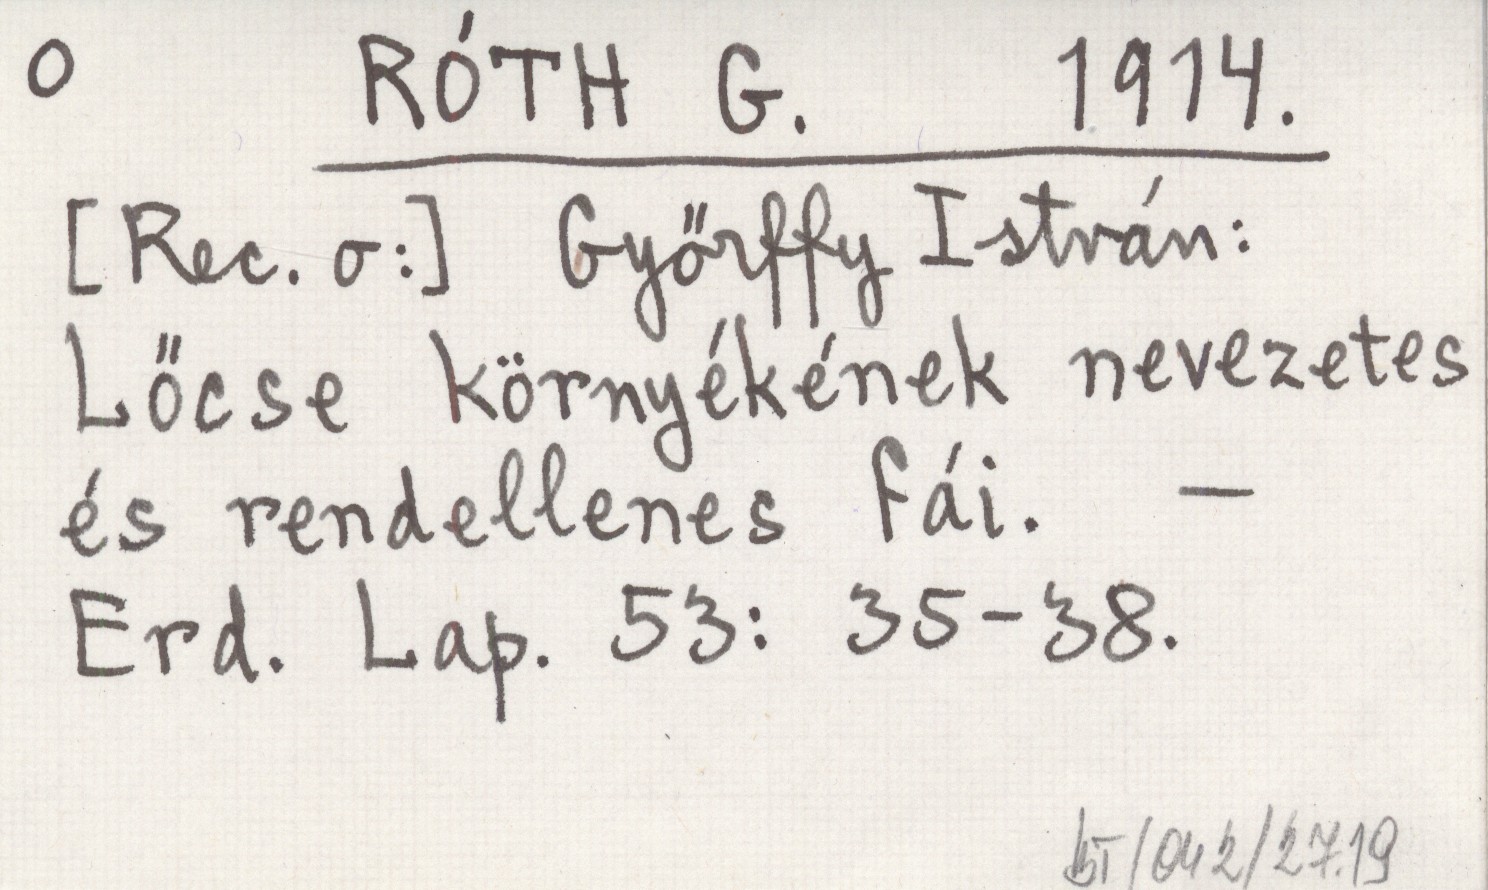 o RÓTH G. 1914.
[Rec. o:] Győrffy István:
Lőcse környékének nevezetes
és rendellenes fái. —
Erd. Lap. 53: 35-38.
BT/042/2719